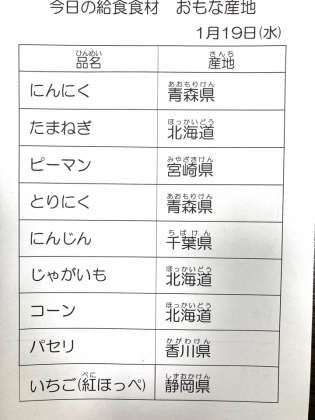 今日の給食食材　おもな産地
1月19日(水)
ひんめい　さんち
品名　産地
あおもりけん
にんにく　青森県
ほっかいどう
たまねぎ　北海道
みやざきけん
ピーマン　宮崎県
あおもりけん
とりにく　青森県
ちばけん
にんじん　千葉県
ほっかいどう
じゃがいも　北海道
ほっかいどう
コーン　北海道
かがわけん
パセリ　香川県
べに　しずおかけん
いちご(紅ほっぺ)　静岡県